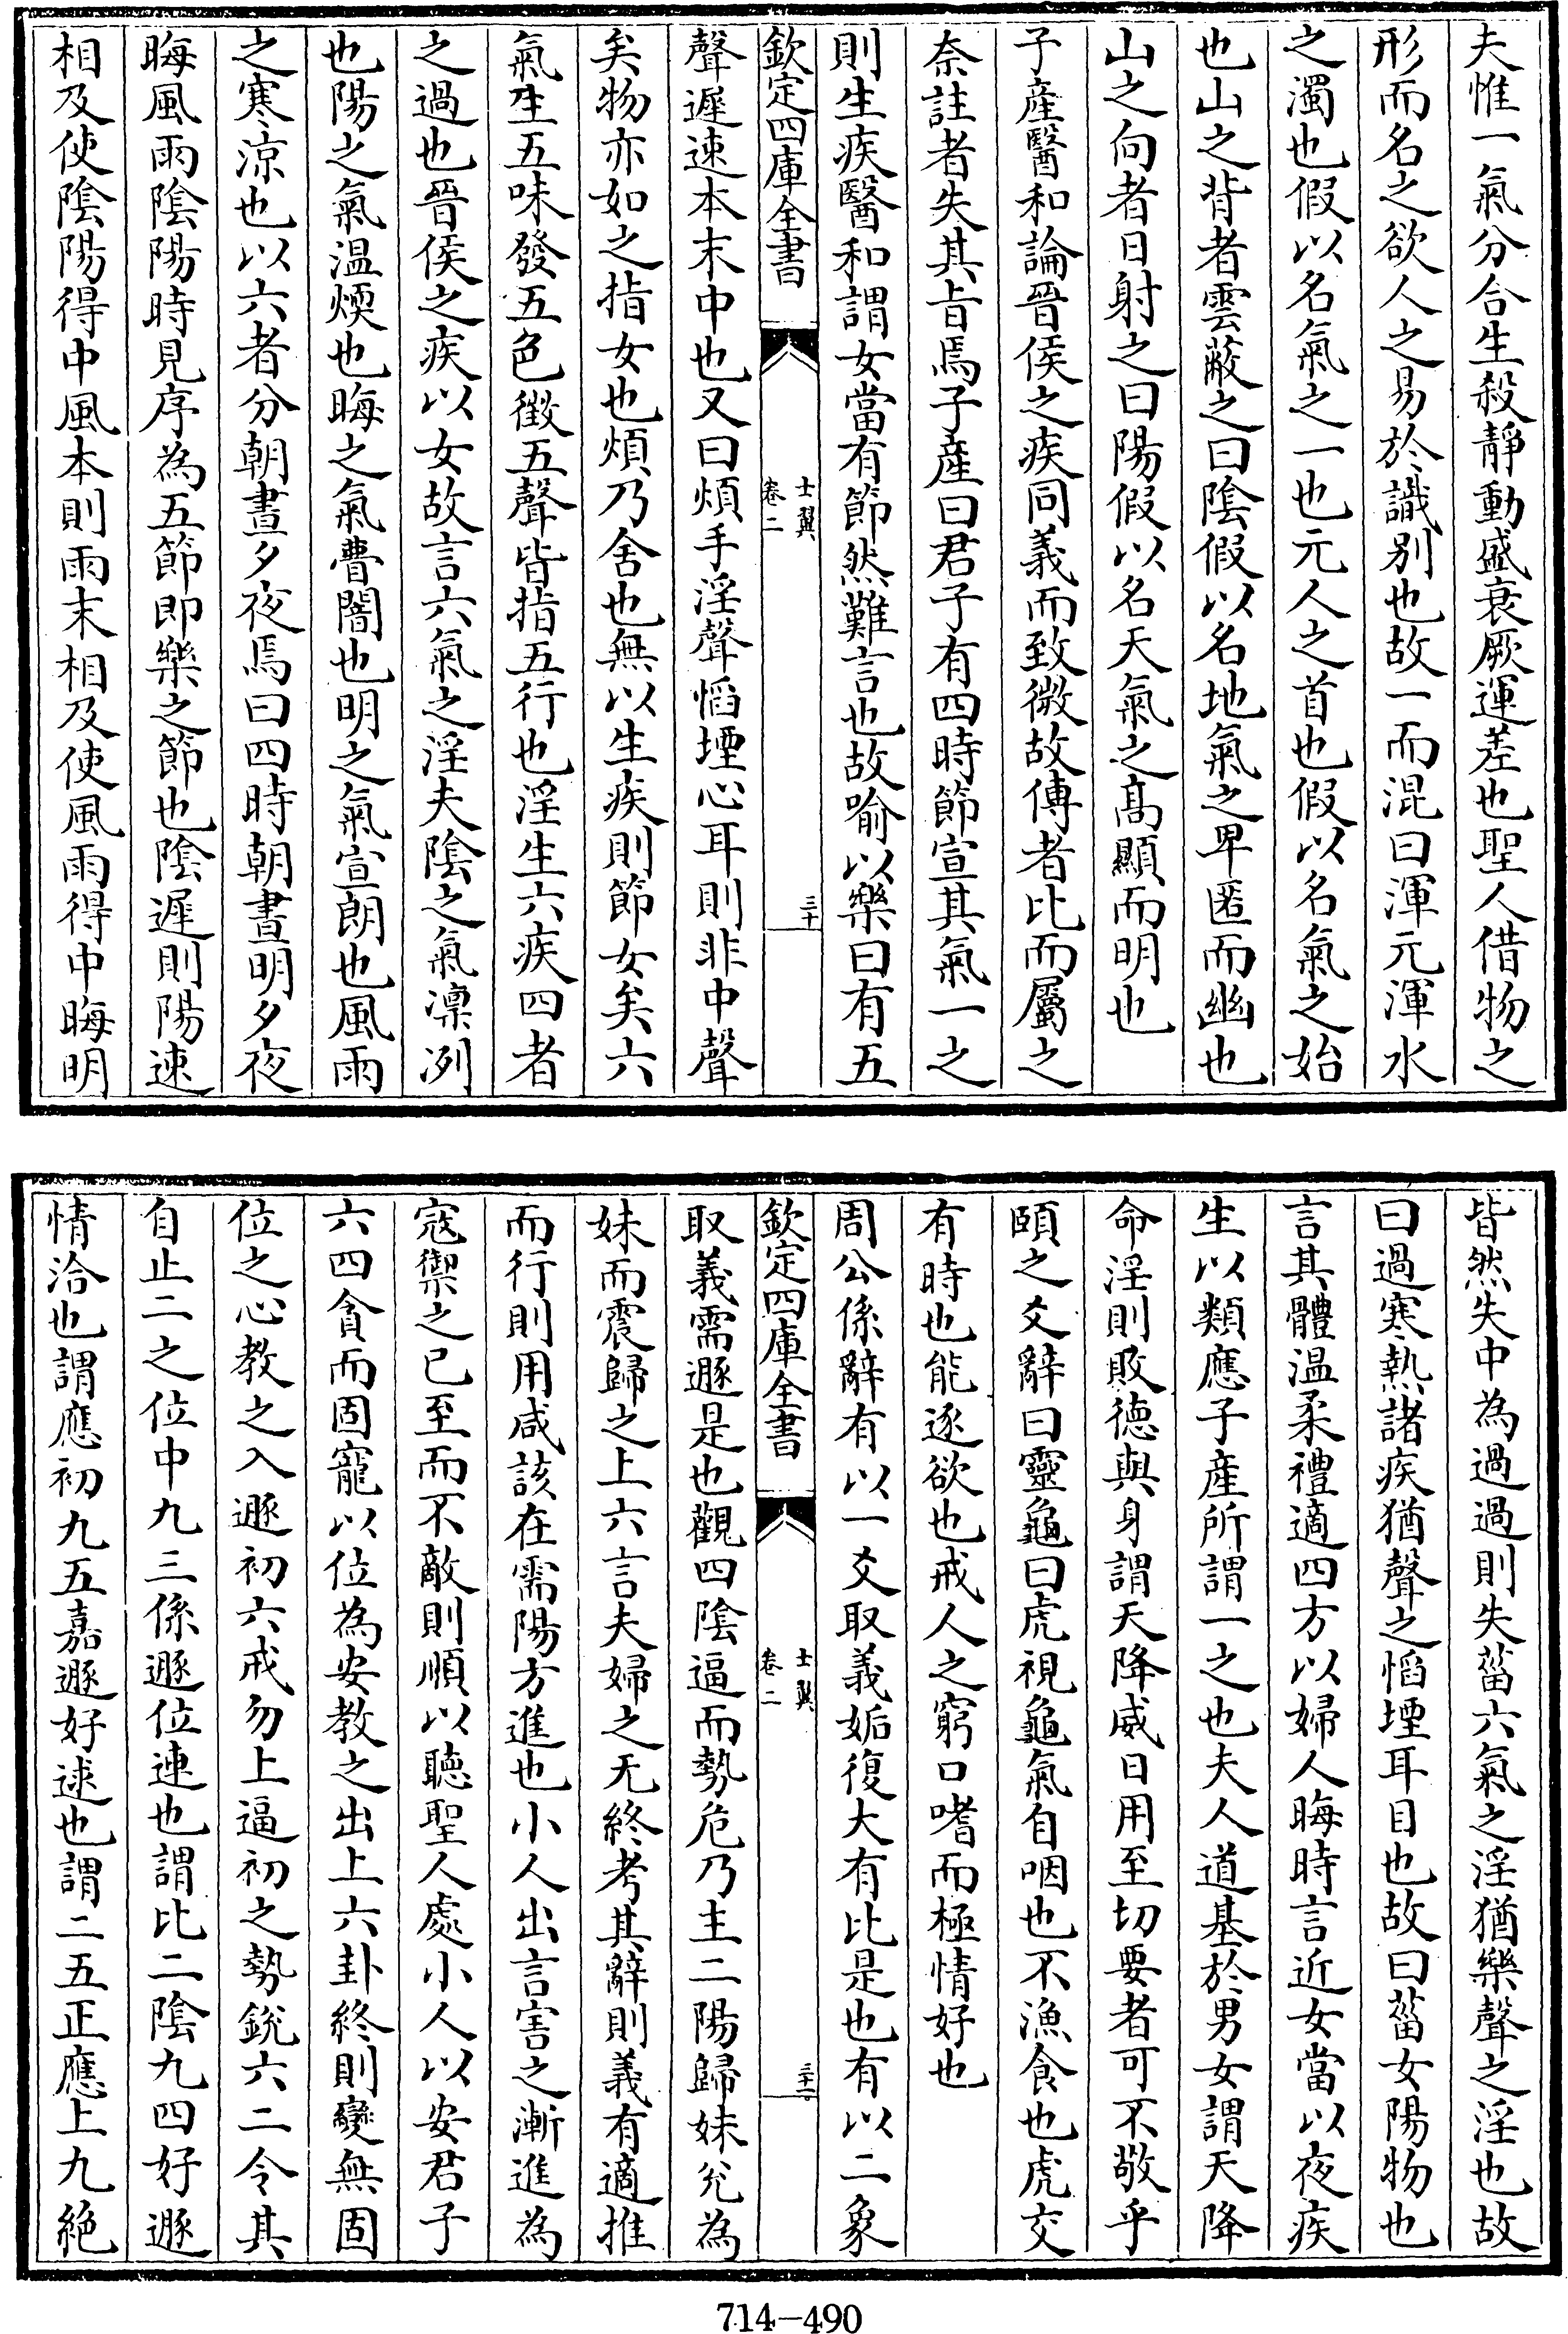 夫惟一氣分合生殺靜動盛衰厥運差也聖人借物之
形而名之欲人之易於識別也故一而混曰渾元渾水
之濁也假以名氣之一也元人之首也假以名氣之始
也山之背者雲蔽之曰陰假以名地氣之卑匿而幽也
山之向者日射之曰陽假以名天氣之高顯而明也
子產醫和論晉侯之疾同義而致微故傳者比而屬之
奈註者失其旨焉子產曰君子有四時節宣其氣一之
則生疾醫和謂女當有節然難言也故喻以樂曰有五
欽定四庫全書
士翼
卷二
三十
聲遲速本末中也又曰煩手淫聲慆堙心耳則非中聲
矣物亦如之指女也煩乃舍也無以生疾則節女矣六
氣生五味發五色徵五聲皆指五行也淫生六疾四者
之過也晉侯之疾以女故言六氣之淫夫陰之氣凛冽
也陽之氣温煗也晦之氣瞢闇也明之氣宣朗也風雨
之寒涼也以六者分朝晝夕夜焉曰四時朝晝明夕夜
晦風雨陰陽時見序為五節即樂之節也陰遲則陽速
相及使陰陽得中風本則雨末相及使風雨得中晦明
皆然失中為過過則失菑六氣之淫猶樂聲之淫也故
曰過寒熱諸疾猶聲之慆堙耳目也故曰菑女陽物也
言其體温柔禮適四方以婦人晦時言近女當以夜疾
生以類應子產所謂一之也夫人道基於男女謂天降
命淫則敗德與身謂天降威日用至切要者可不敬乎
頤之爻辭曰靈龜曰虎視龜氣自咽也不漁食也虎交
有時也能逐欲也戒人之窮口嗜而極情好也
周公係辭有以一爻取義姤復大有比是也有以二象
欽定四庫全書
士翼
卷二
三十一
取義需遯是也觀四陰逼而勢危乃主二陽歸妹兊為
妹而震歸之上六言夫婦之无終考其辭則義有適推
而行則用咸該在需陽方進也小人出言害之漸進為
寇禦之已至而不敵則順以聽聖人處小人以安君子
六四貪而固寵以位為安教之出上六卦終則變無固
位之心教之入遯初六戒勿上逼初之勢銳六二令其
自止二之位中九三係遯位連也謂比二陰九四好遯
情洽也謂應初九五嘉遯好逑也謂二五正應上九絶
714-490